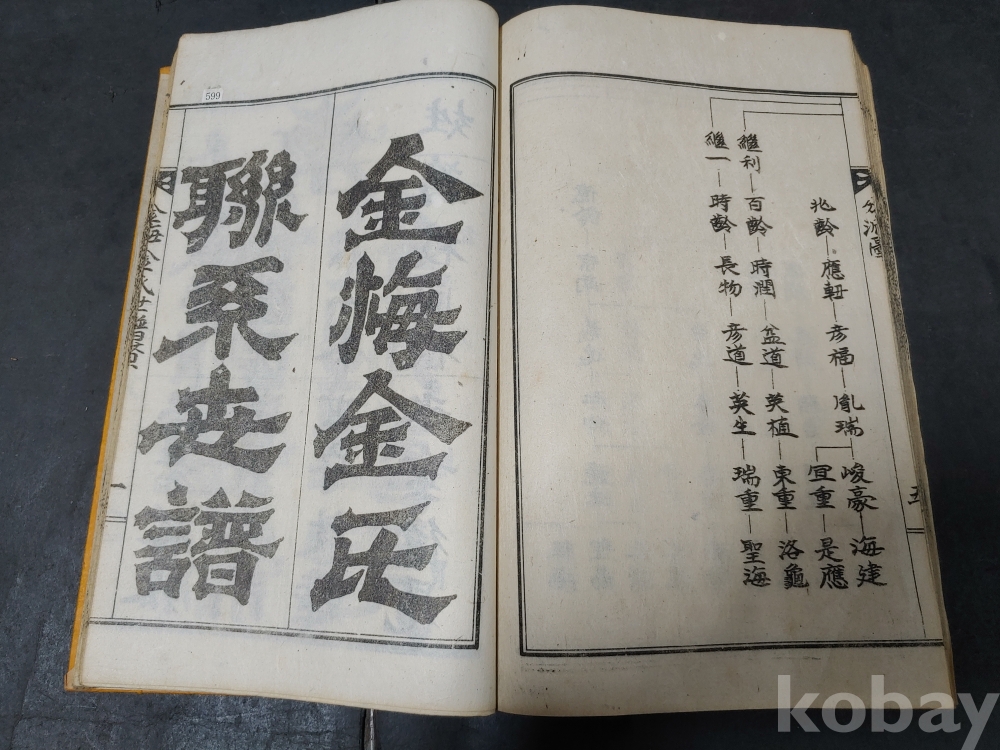 分派圖
兆齡 應軒 彦福 胤瑞 峻豪 海建
宜重 是應
繼利 百齡 時潤 盆道 英植 東重 洛龜
繼一 時齡 長物 彦道 英生 瑞重 聖海
五
金海金氏
聯系世譜
599
一
kobay